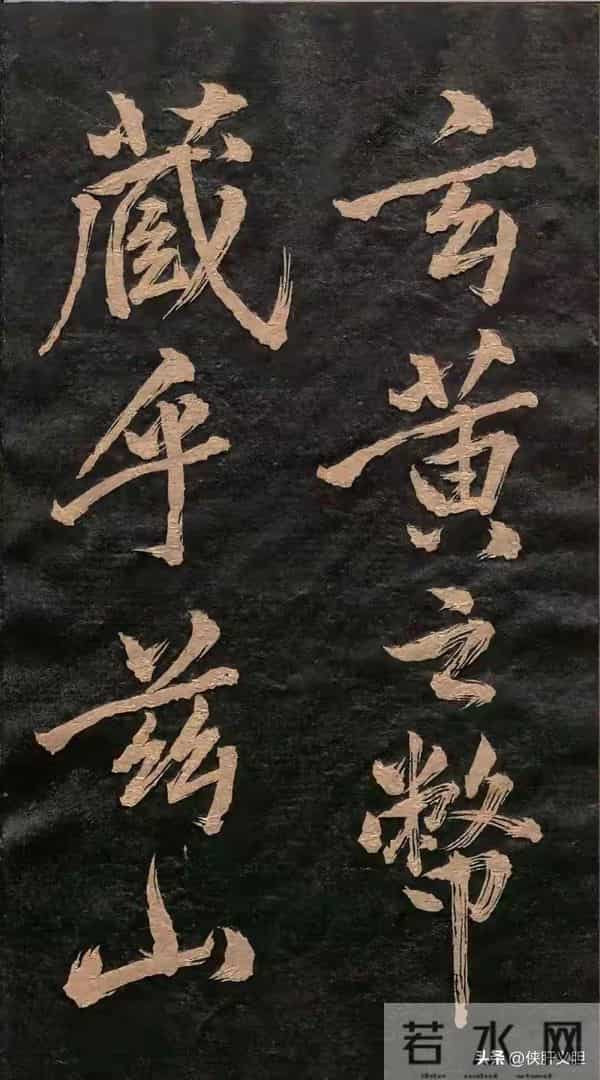 玄黄之幣
藏乎兹山
若水网
头条 @侠肝义胆